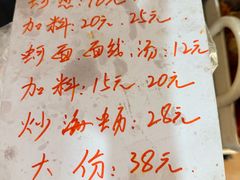 加料:20元 25元
蚵面、面线、汤:12元
加料:15元 20元
炒海蛎:28元
大份:38元